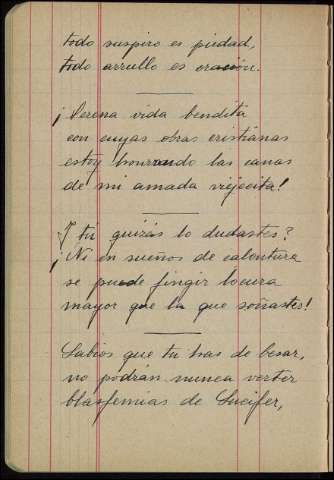 todo suspiro es piedad,
todo arrullo es oración.
¡Serena vida bendita
con cuyas obras cristianas
estoy honrando las canas
de mi amada viejecita!
Y tú quizás lo dudastes?
¡Ni en sueños de calentura
se puede fingir locura
mayor que la que soñastes!
Labios que tú has de besar,
no podrán nunca verter
blasfemias de Lucifer,